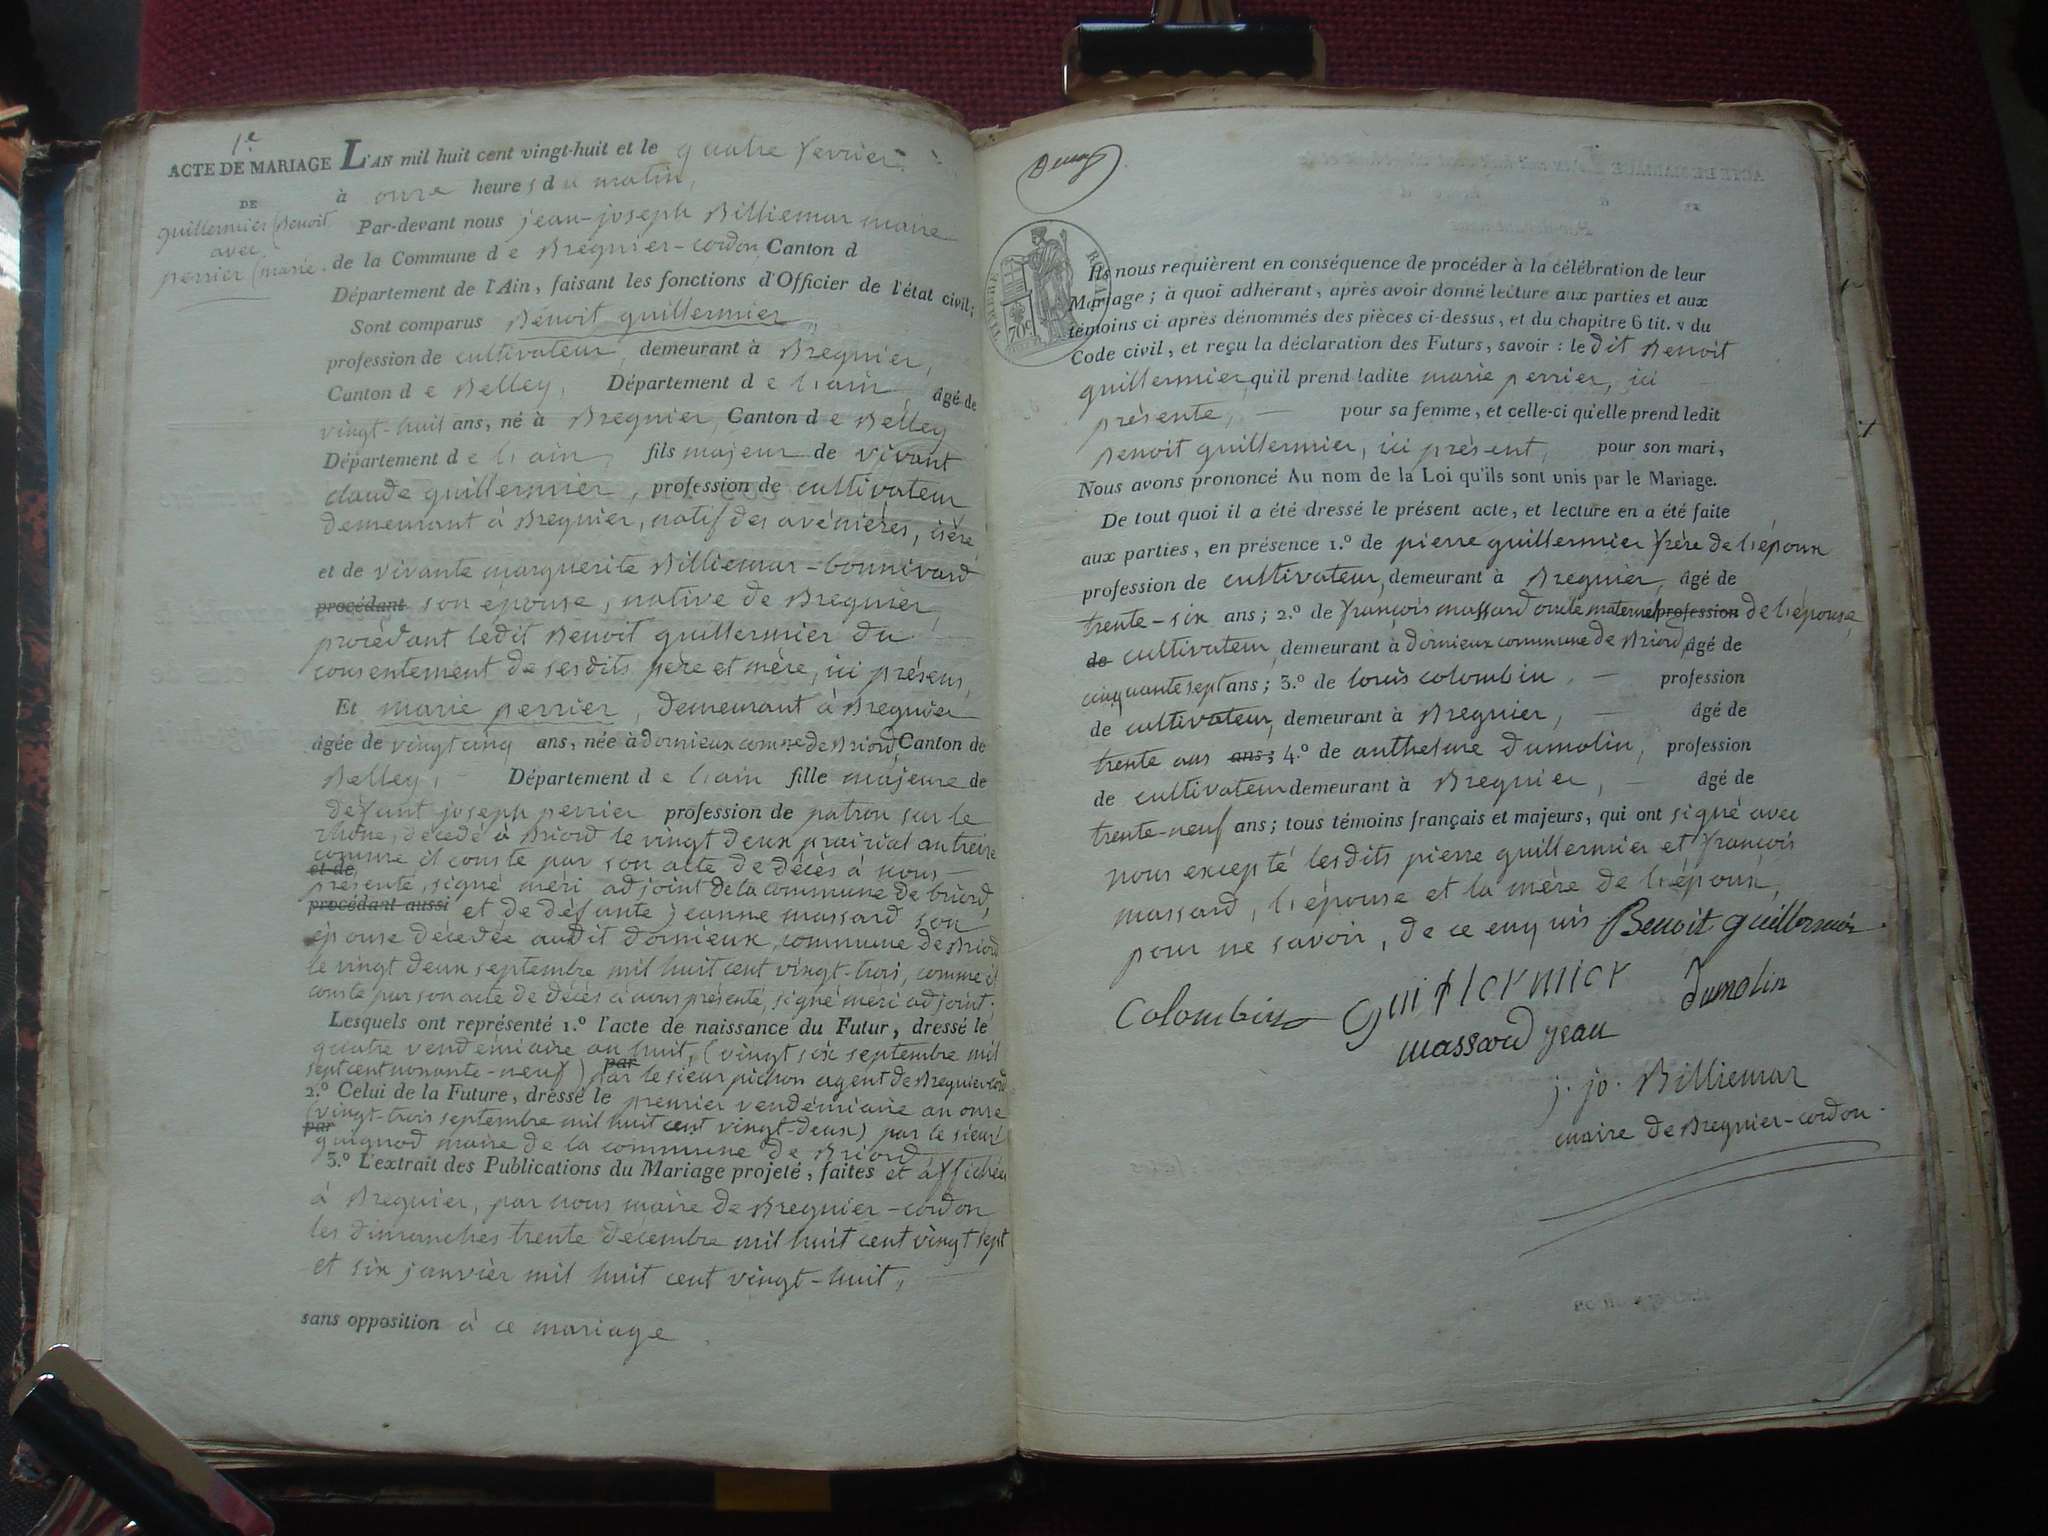 1.e
ACTE DE MARIAGE L'AN mil huit cent vingt-huit et le quatre fevrier
à onze heures du matin,
DE
guillermier (Benoit
avec
perrier (marie.
Par-devant nous jean-joseph Billiemar maire
de la Commune de Bregnier-cordon, Canton d
Département de l'Ain, faisant les fonctions d'Officier de l'état civil;
Sont comparus Benoit guillermier,
profession de cultivateur, demeurant à Bregnier,
Canton de Belley, Département de l'ain, âgé de
vingt-huit ans, né à Bregnier, Canton de Belley
Département de l'ain, fils majeur de vivant
claude guillermier, profession de cultivateur
demeurant à Bregnier, natif des avénières, isère,
et de vivante marguerite Billiemar-bonnivard
procédant son epouse, native de Bregnier,
procédant ledit Benoit guillermier du
consentement de sesdits père et mère, ici présens,
Et marie perrier, demeurant à Bregnier
âgée de vingt cinq ans, née à dornieux comne de Briord, Canton de
Belley, Département de l'ain fille majeure de
defunt joseph perrier profession de patron sur le
rhône, décédé à Briord le vingt deux prairial an treize
comme il conste par son acte de décès à nous
et de
présenté, signé méri adjoint de la commune de briord,
procédant aussi et de défunte jeanne massard son
épouse décédée audit dornieux, commune de Briord
le vingt deux septembre mil huit cent vingt-trois, comme il
conste par son acte de décès à nous présenté, signé méri adjoint;
Lesquels ont représenté 1.º l'acte de naissance du Futur, dressé le
quatre vendémiaire an huit, (vingt six septembre mil
sept cent nonante-neuf) par par le sieur pichon agent de Bregnier-cord
2.º Celui de la Future, dressé le premier vendémiaire an onze
(vingt-trois septembre mil huit cent vingt-deux) par le sieur
par guignod maire de la commune de Briord
3.º L'extrait des Publications du Mariage projeté, faites et affichées
à Bregnier, par nous maire de Bregnier-cordon
les dimanches trente décembre mil huit cent vingt sept
et six janvier mil huit cent vingt-huit,
sans opposition à ce mariage.
TIMBRE ROYAL
70c
Ils nous requièrent en conséquence de procéder à la célébration de leur
Mariage; à quoi adhérant, après avoir donné lecture aux parties et aux
témoins ci après dénommés des pièces ci-dessus, et du chapitre 6 tit. v du
Code civil, et reçu la déclaration des Futurs, savoir : le dit Benoit
guillermier qu'il prend ladite marie perrier, ici
présente, pour sa femme, et celle-ci qu'elle prend ledit
Benoit guillermier, ici présent, pour son mari,
Nous avons prononcé Au nom de la Loi qu'ils sont unis par le Mariage.
De tout quoi il a été dressé le présent acte, et lecture en a été faite
aux parties, en présence 1.º de pierre guillermier frère de l'époux
profession de cultivateur, demeurant à Bregnier, âgé de
trente-six ans; 2.º de françois massard oncle maternel profession de l'épouse,
de cultivateur, demeurant à dornieux commune de Briord, âgé de
cinquante sept ans; 3.º de louis colombin, profession
de cultivateur, demeurant à Bregnier, âgé de
trente ans ans; 4.º de anthelme dumolin, profession
de cultivateur demeurant à Bregnier, âgé de
trente-neuf ans; tous témoins français et majeurs, qui ont signé avec
nous excepté lesdits pierre guillermier et françois
massard, l'épouse et la mère de l'époux,
pour ne savoir, de ce enquis Benoit guillermier
Colombin guillermier dumolin
massard jean
j. jo. Billiemar
maire de Bregnier-cordon.